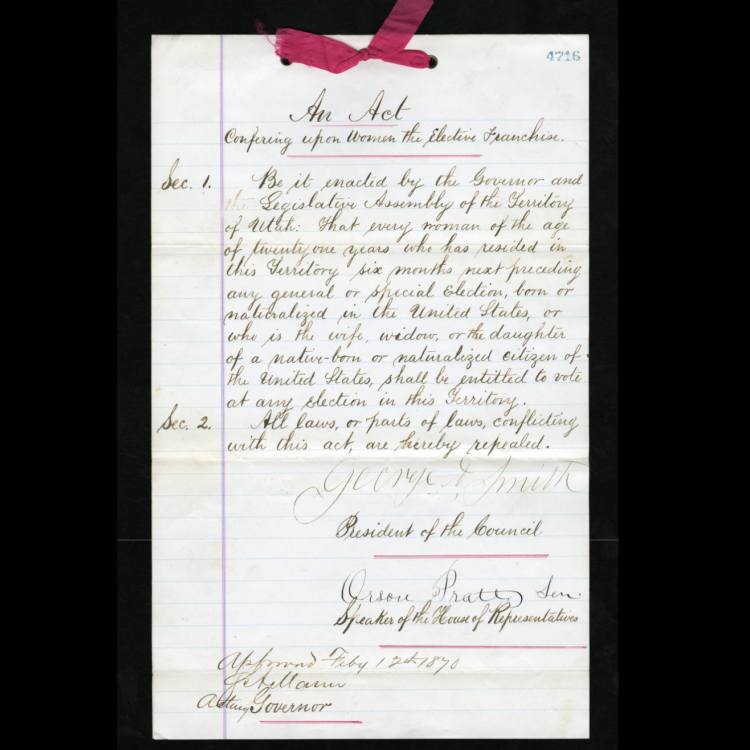 4716
An Act
Confering upon Women the Elective Franchise.
Sec. 1. Be it enacted by the Governor and
the Legislative Assembly of the Territory
of Utah: That every woman of the age
of twenty one years who has resided in
this Territory six months next preceding
any general or special Election, born or
naturalized in the United States, or
who is the wife, widow, or the daughter
of a native-born or naturalized citizen of
the United States, shall be entitled to vote
at any election in this Territory.
Sec. 2. All laws, or parts of laws, conflicting
with this act, are hereby repealed.
George A. Smith
President of the Council
Orson Pratt, Sen.
Speaker of the House of Representatives
Approved Feby 12th 1870
S A Mann
Acting Governor